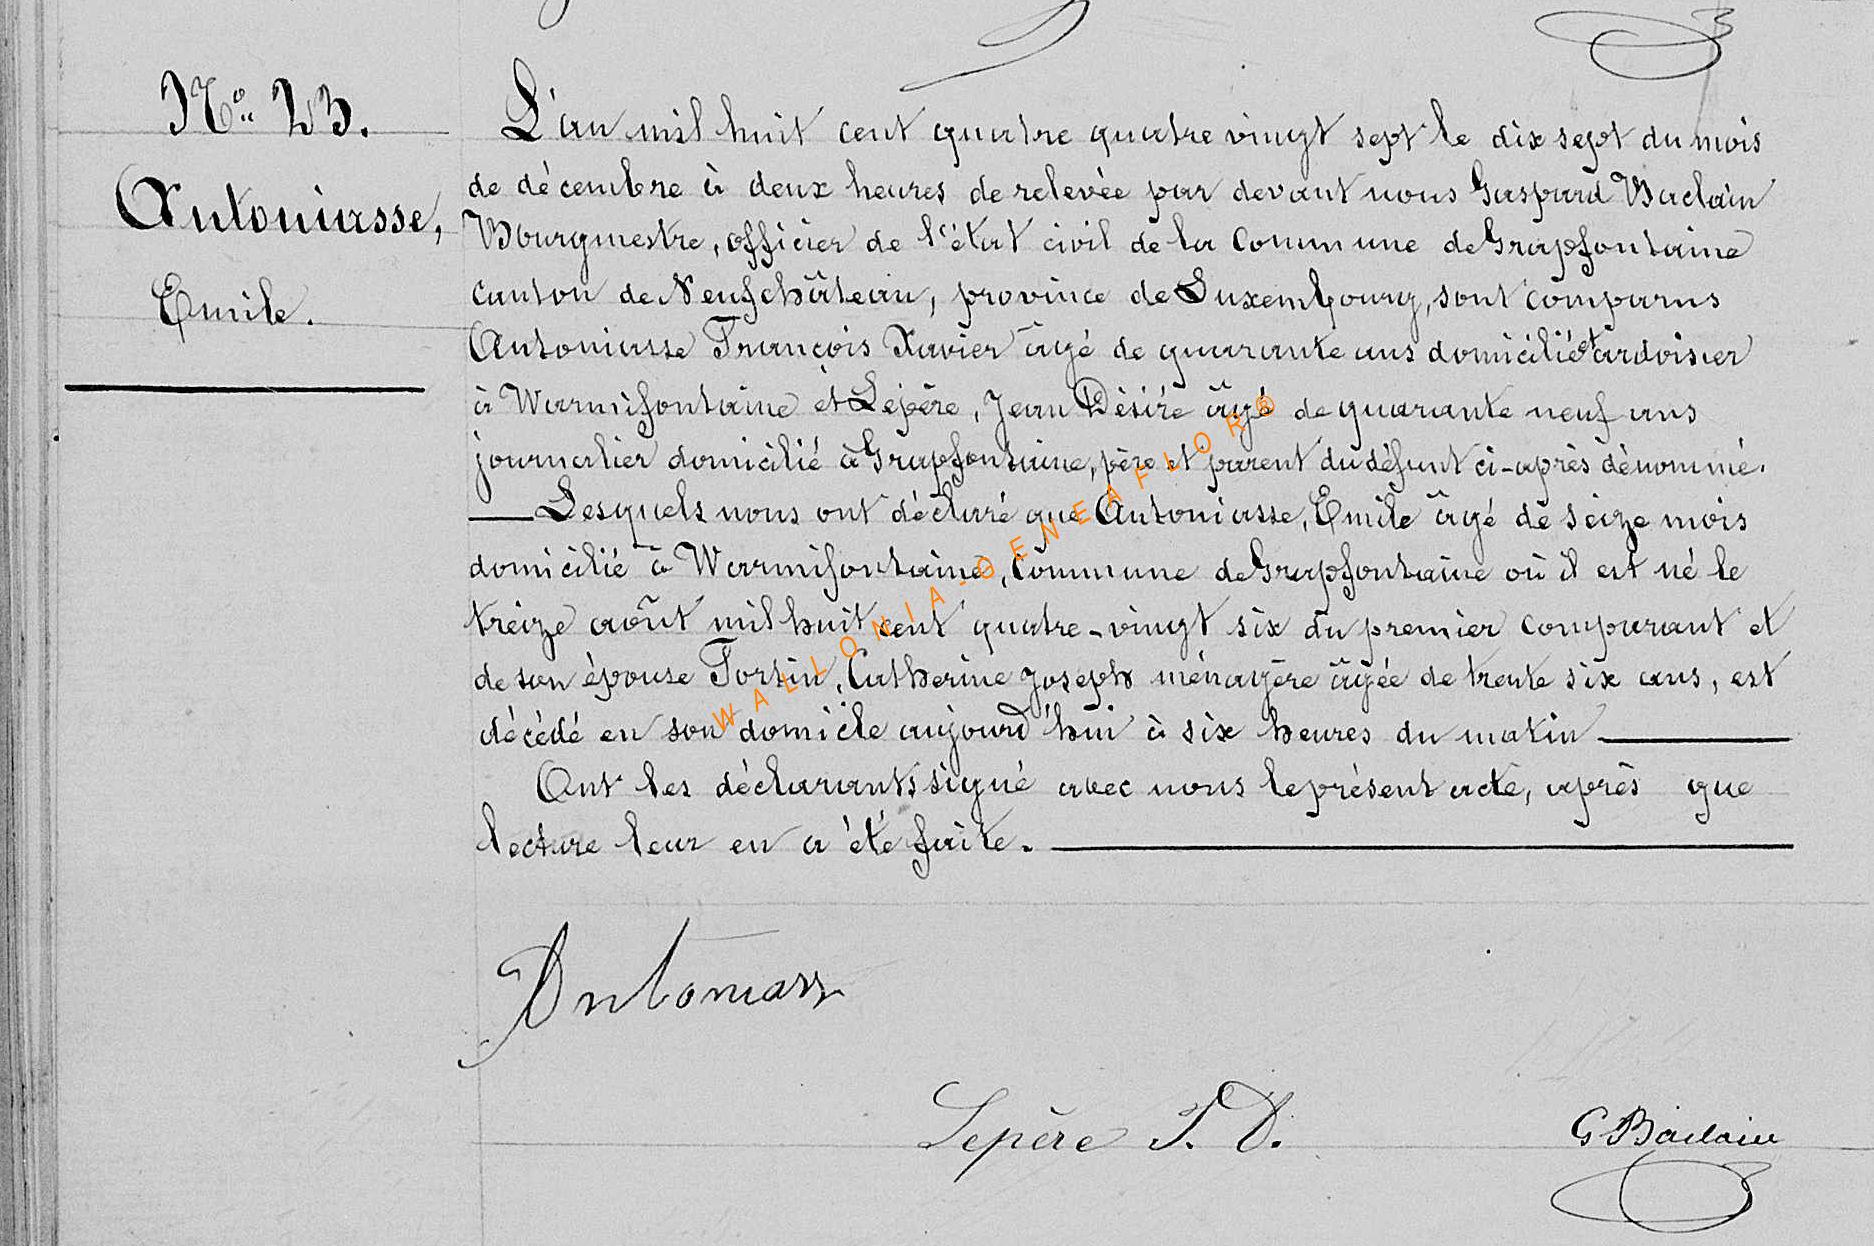 No. 23.
Antoniasse,
Emile.
L'an mil huit cent quatre quatre vingt sept le dix sept du mois
de décembre à deux heures de relevée par devant nous Gaspard Baclain
Bourgmestre, officier de l'état civil de la Commune de Grapfontaine
canton de Neufchâteau, province de Luxembourg, sont comparus
Antoniasse François Xavier âgé de quarante ans domicilié et ardoisier
à Warmifontaine et Lepère, Jean Désiré âgé de quarante neuf ans
journalier domicilié à Grapfontaine, père et parent du défunt ci-après dénommé.
Lesquels nous ont déclaré que Antoniasse, Emile âgé de seize mois
domicilié à Warmifontaine, Commune de Grapfontaine où il est né le
treize août mil huit cent quatre-vingt six du premier comparant et
de son épouse Forsin, Catherine Joseph ménagère âgée de trente six ans, est
décédé en son domicile aujourd'hui à six heures du matin
Ont les déclarants signé avec nous le présent acte, après que
lecture leur en a été faite.
Antoniass
Lepère J. D.
G Baclain
WALLONIA-GENEAFLOR®